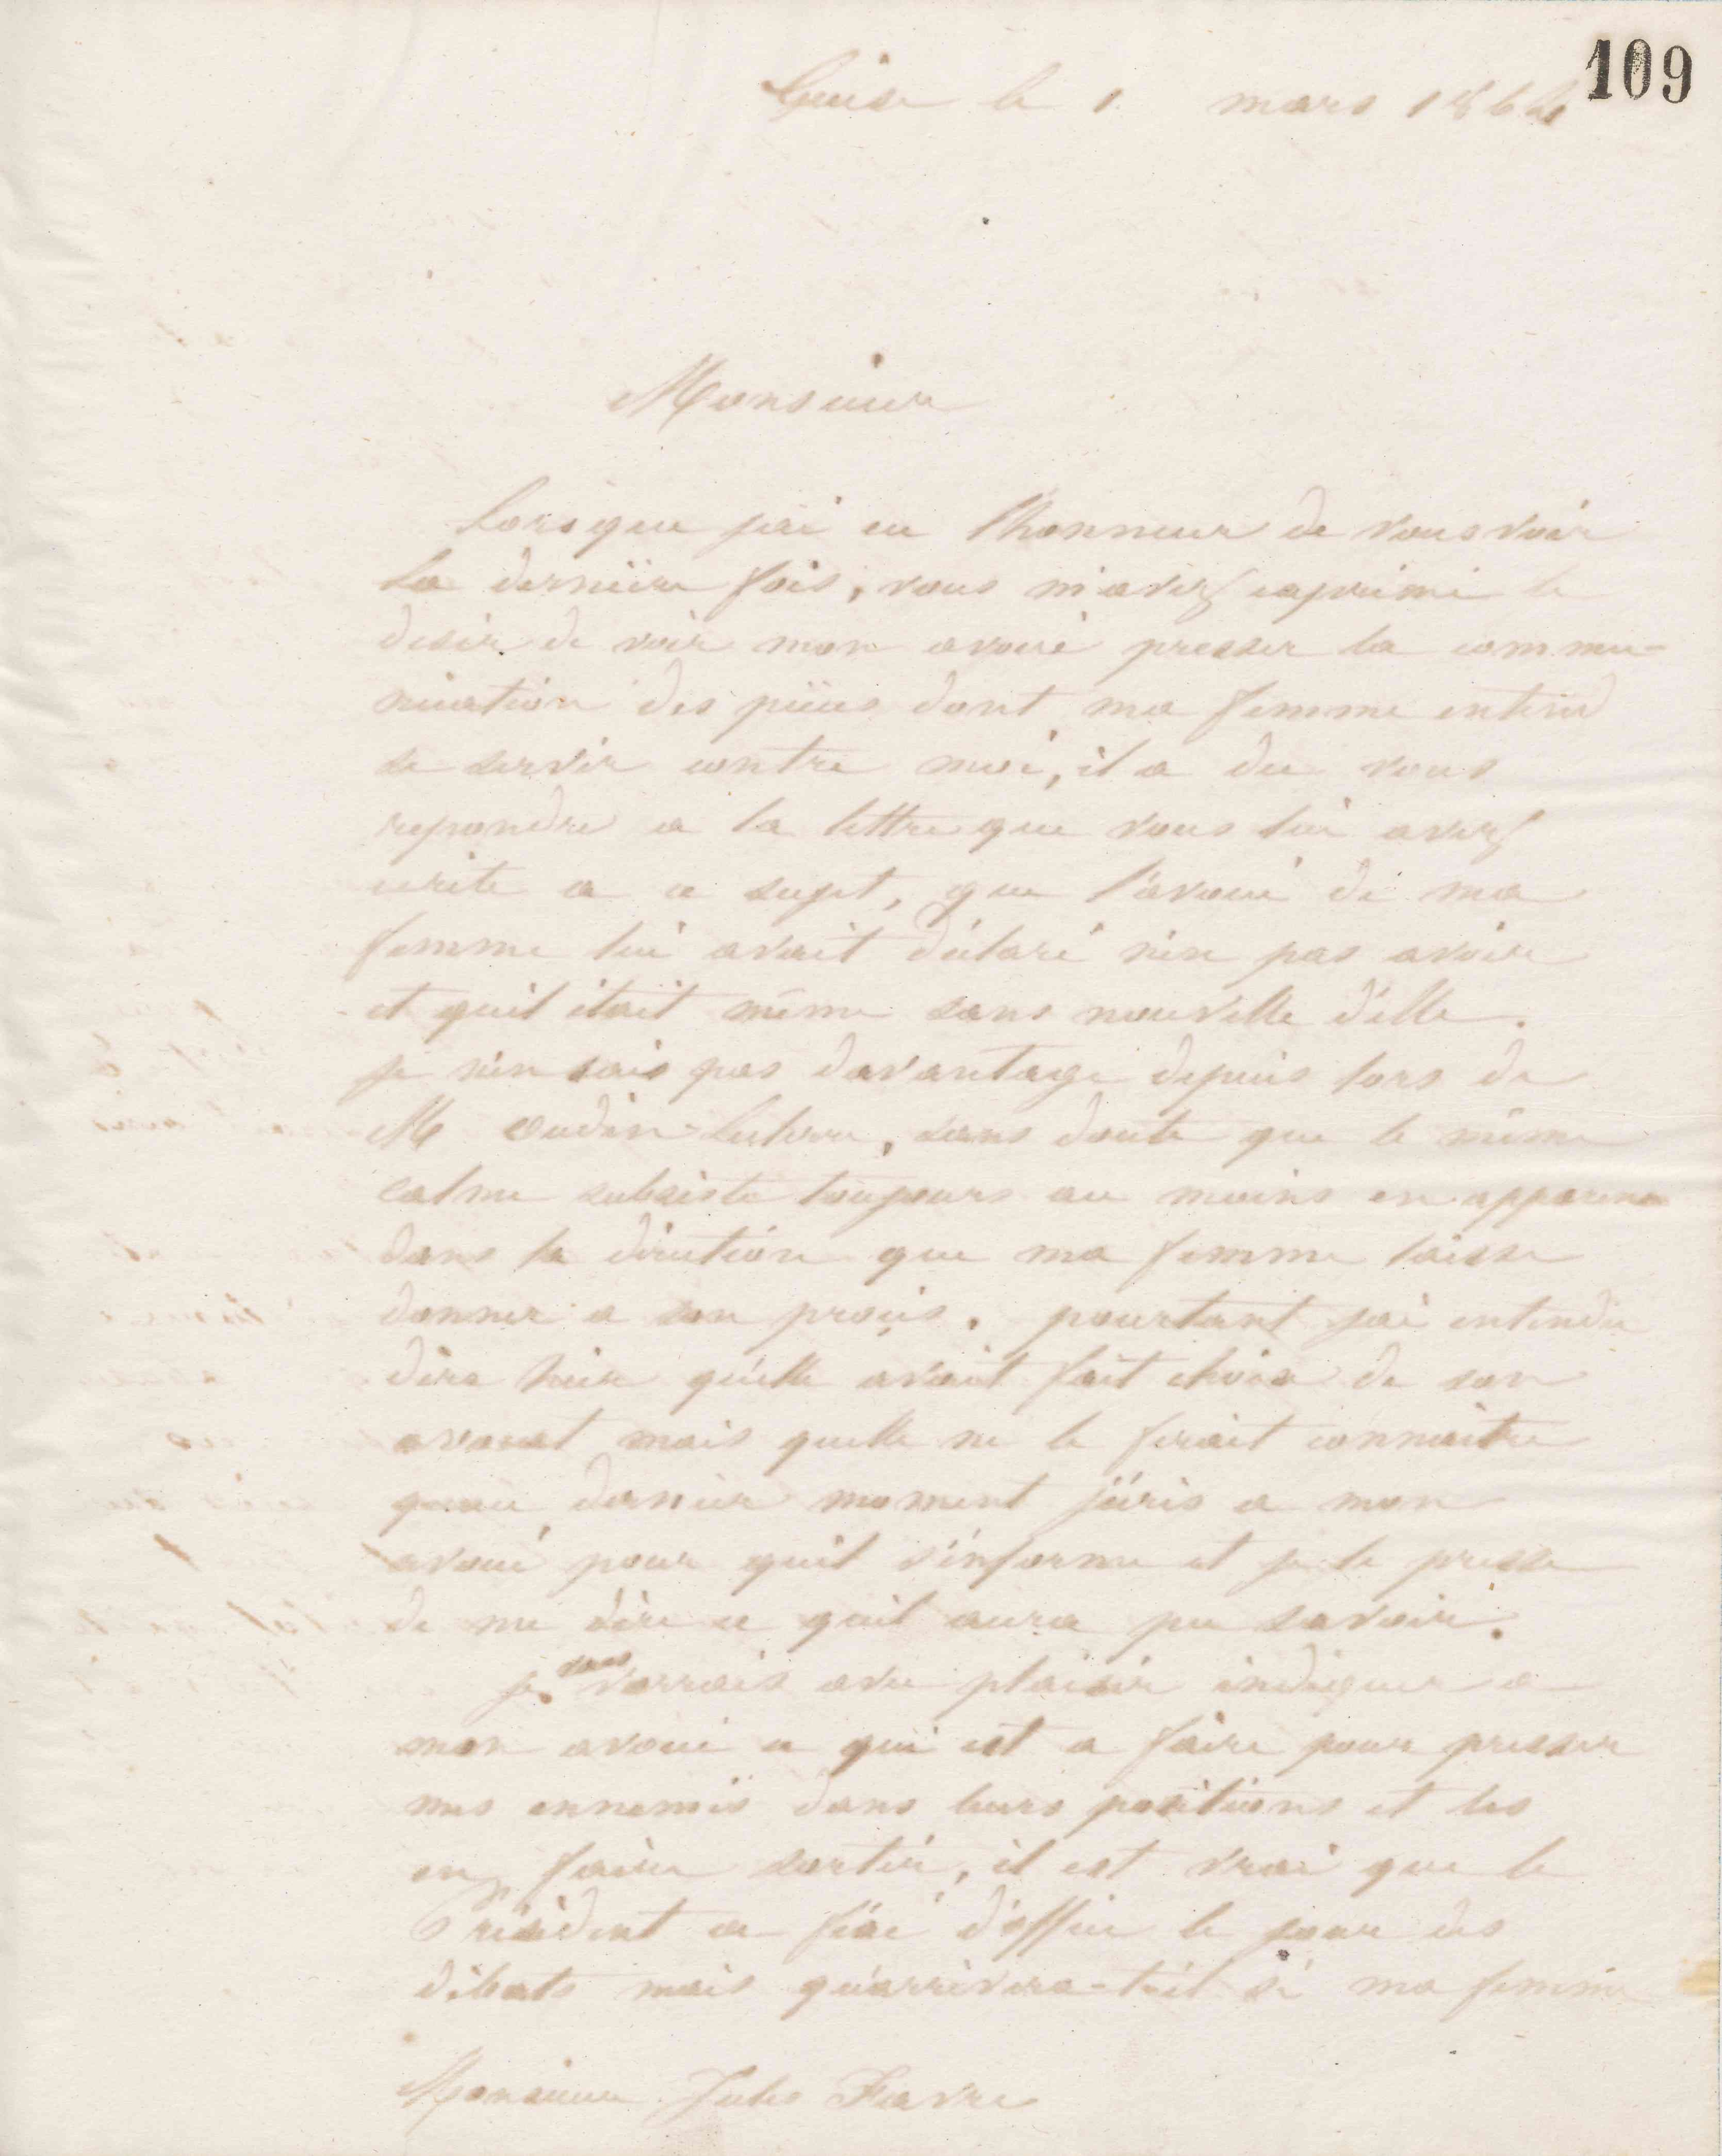 109
Guise le 1 mars 1864
Monsieur
Lorsque j'ai eu l'honneur de vous voir
la dernière fois, vous m'avez exprimé le
desir de voir mon avoué presser la commu-
nication des pièces dont ma femme entend
se servir contre moi, il a du vous
repondre a la lettre que vous lui avez
écrite a ce sujet, que l'avoué de ma
femme lui avait déclaré n'en pas avoir
et quil était même sans nouvelle d'elle.
je n'en sais pas davantage depuis lors de
M oudin-Leclere, sans doute que le même
calme subsiste toujours au moins en apparence
dans la direction que ma femme laisse
donner a son procès. pourtant j'ai entendu
dire hier qu'elle avait fait choix de son
avocat mais quelle ne le ferait connaitre
qu'au dernier moment j'écris a mon
avoué pour quil s'informe et je le presse
de me dire ce quil aura pu savoir.
je vous verrais avec plaisir indiquer a
mon avoué ce qui est a faire pour presser
mes ennemis dans leurs positions et les
en faire sortir, il est vrai que le
Président a fixé d'office le jour des
débats mais qu'arrivera-t-il si ma femme
Monsieur Jules Favre